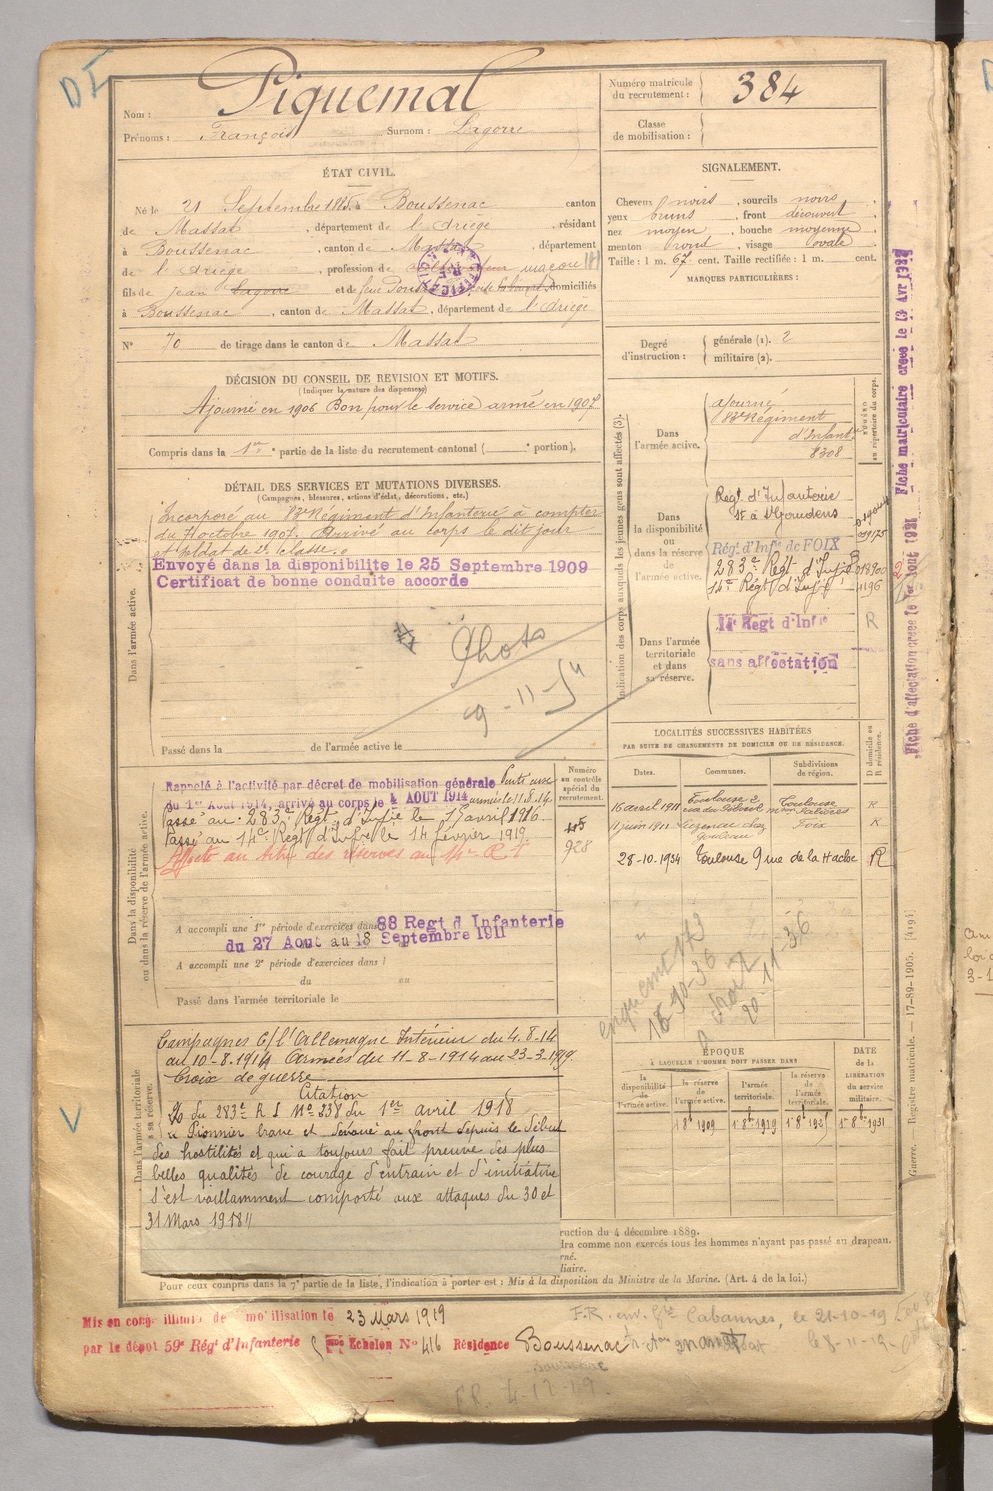 DI
Nom : Piquemal
Prénoms : François Surnom : Lagorre
Numéro matricule du recrutement : 384
Classe de mobilisation :
ÉTAT CIVIL.
Né le 21 Septembre 1885, à Boussenac canton
de Massat, département de l'Ariège, résidant
à Boussenac, canton de Massat, département
de l'Ariège, profession de cultivateur maçon
fils de Jean Lagorre et de feue domiciliés
à Boussenac, canton de Massat, département de l'Ariège
N° 70 de tirage dans le canton de Massat
SIGNALEMENT.
Cheveux noirs, sourcils noirs,
yeux bruns, front découvert
nez moyen, bouche moyenne
menton rond, visage ovale
Taille : 1 m. 67 cent. Taille rectifiée : 1 m. cent.
MARQUES PARTICULIÈRES :
Degré d'instruction : générale (1). 2
militaire (2).
DÉCISION DU CONSEIL DE REVISION ET MOTIFS.
(Indiquer la nature des dispenses)
Ajourné en 1906 Bon pour le service armé en 1907
Compris dans la 1re partie de la liste du recrutement cantonal ( portion).
DÉTAIL DES SERVICES ET MUTATIONS DIVERSES.
(Campagnes, blessures, actions d'éclat, décorations, etc.)
Dans l'armée active.
Incorporé au Régiment d'Infanterie à compter
du 7 octobre 1907. Arrivé au corps le dit jour
et soldat de 2e classe.
Envoyé dans la disponibilite le 25 Septembre 1909
Certificat de bonne conduite accorde
Photo
9-11-54
Passé dans la de l'armée active le
Indication des corps auxquels les jeunes gens sont affectés (3).
NUMÉRO au répertoire du corps.
Dans l'armée active.
ajourné
Régiment
d'Infanterie
8308
Dans la disponibilité ou dans la réserve de l'armée active.
Régt d'Infanterie
St à St Gaudens
Régt d'Infie de FOIX
283e Régt d'Infie
14e Régt d'Infie
Dans l'armée territoriale et dans sa réserve.
14e Regt d'Infie
R
sans affectation
Fiche matriculaire creee le 13 Avr 1927
Fiche d'affectation creee le 1er Aout 1921
LOCALITÉS SUCCESSIVES HABITÉES
PAR SUITE DE CHANGEMENTS DE DOMICILE OU DE RÉSIDENCE.
Dates. Communes. Subdivisions de région. D domicile ou R résidence.
16 avril 1911 Toulouse 2 Toulouse R
11 juin 1911 Luzenac chez Foix R
28-10-1934 Toulouse 9 rue de la Hache R
20-11-36
Dans la disponibilité ou dans la réserve de l'armée active.
Numéro au contrôle spécial du recrutement.
Rappelé à l'activité par décret de mobilisation générale
du 1er Août 1914, arrivé au corps le 4 AOUT 1914 armées le 11.8.14
Passé au 283e Régt d'Infie le 17 avril 1916
Passé au 14e Régt d'Infie le 14 février 1919
Affecté au titre des réserves au 14e R I
928
A accompli une 1re période d'exercices dans 88 Regt d Infanterie
du 27 Aout au 18 Septembre 1911
A accompli une 2e période d'exercices dans
du au
Passé dans l'armée territoriale le
Dans l'armée territoriale et dans sa réserve.
Campagnes C/ l'Allemagne Intérieur du 4.8.14
au 10-8-1914 Armées du 11-8-1914 au 23-3-1919
Croix de guerre
Citation
du 283e R I N° 238 du 1er avril 1918
« Pionnier brave et dévoué au front depuis le début
des hostilités et qui a toujours fait preuve des plus
belles qualités de courage d'entrain et d'initiative
s'est vaillamment comporté aux attaques du 30 et
31 Mars 1918 »
ÉPOQUE À LAQUELLE L'HOMME DOIT PASSER DANS
DATE de la LIBÉRATION du service militaire.
la disponibilité de l'armée active. la réserve de l'armée active. l'armée territoriale. la réserve de l'armée territoriale.
1er 8bre 1909 1er 8bre 1919 1er 8bre 1925 1er 8bre 1931
ruction du 4 décembre 1889.
dra comme non exercés tous les hommes n'ayant pas passé au drapeau.
rné.
liaire.
Pour ceux compris dans la 7e partie de la liste, l'indication à porter est : Mis à la disposition du Ministre de la Marine. (Art. 4 de la loi.)
Guerre. — Registre matricule. — 17-89-1905. [4194]
Mis en congé illimité de mobilisation le 23 Mars 1919
par le dépôt 59e Rég' d'Infanterie Echelon N° 416 Résidence Boussenac
Cabannes, le 21-10-19
F.R. 4-12-19.